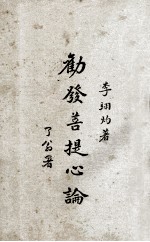 李翊灼著
勸發菩提心論
了翁署